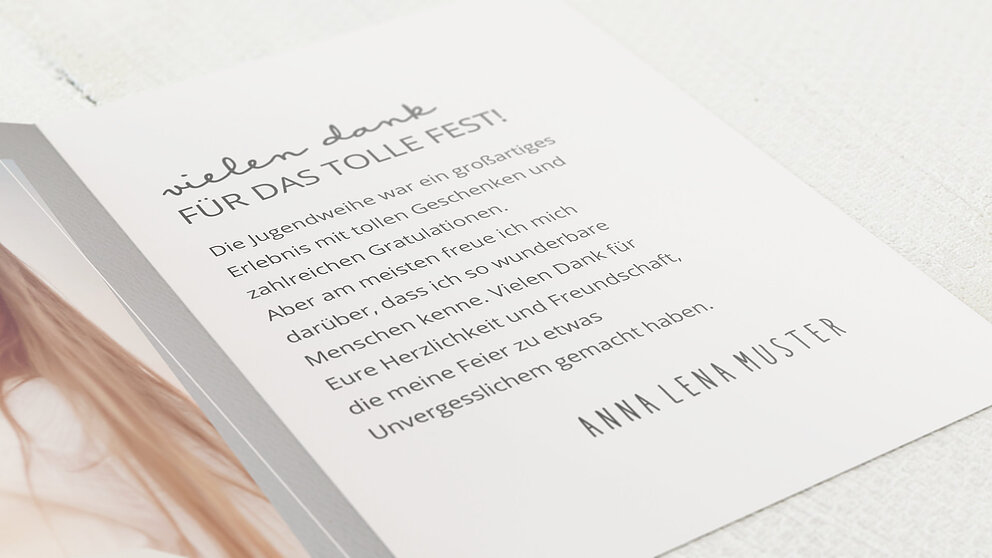 vielen dank
FÜR DAS TOLLE FEST!
Die Jugendweihe war ein großartiges
Erlebnis mit tollen Geschenken und
zahlreichen Gratulationen.
Aber am meisten freue ich mich
darüber, dass ich so wunderbare
Menschen kenne. Vielen Dank für
Eure Herzlichkeit und Freundschaft,
die meine Feier zu etwas
Unvergesslichem gemacht haben.
ANNA LENA MUSTER